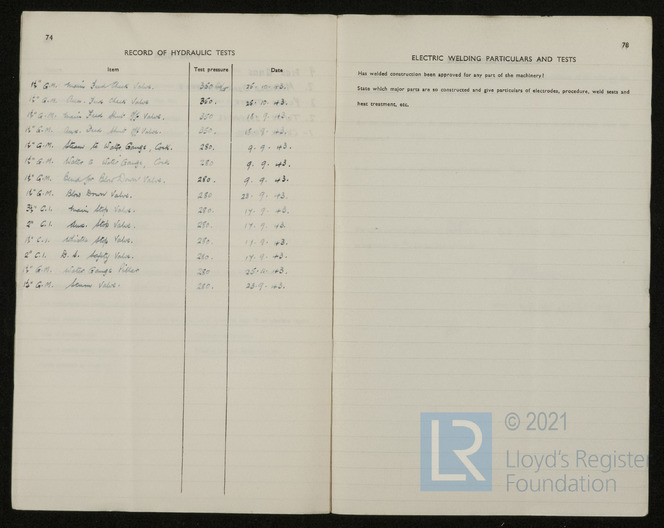 74
RECORD OF HYDRAULIC TESTS
Item Test pressure Date
1½" G.M. Main Feed Check Valve. 360 25.10.43.
1½" G.M. Aux. Feed Check Valve 360. 25.10.43.
1½" G.M. Main Feed Shut Off Valve. 360 18.9.43.
1½" G.M. Aux. Feed Shut Off Valve. 360. 18.9.43.
G.M. Steam to Water Gauge, Cock. 280. 9.9.43.
G.M. Water to Water Gauge, Cock 280 9.9.43.
G.M. Blow Down Valve. 280. 9.9.43.
1½" G.M. Blow Down Valve. 280 9.43.
3½" C.I. Main Stop Valve. 280 14.9.43.
2" C.I. Aux. Stop Valve. 280. 14.9.43.
C.I. Whistle Stop Valve. 280. 9.43.
2" C.I. Safety Valve. 280. 14.9.43.
G.M. Water Gauge Pillar 280 25.10.43.
G.M. Steam Valve. 280. 23.9.43.
76
ELECTRIC WELDING PARTICULARS AND TESTS
Has welded construction been approved for any part of the machinery?
State which major parts are so constructed and give particulars of electrodes, procedure, weld tests and
heat treatment, etc.
LR
© 2021
Lloyd's Register
Foundation